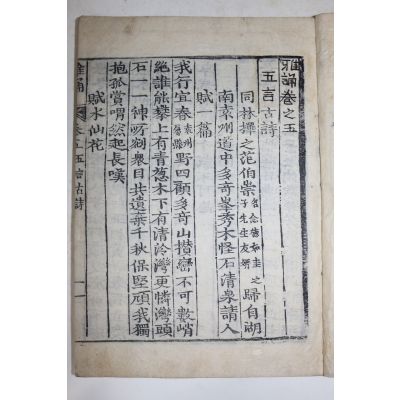 雅誦卷之五
五言古詩
同林擇之范伯崇名念德如圭之子先生友壻歸自湖
南袁州道中多奇峯秀木怪石清泉請人
賦一篇
我行宜春袁州舊縣野四顧多奇山攢巒不可數峭
絶誰能攀上有青葱木下有清泠灣更憐灣頭
石一一神所剜衆目共遺棄千秋保堅頑我獨
抱孤賞喟然起長嘆
賦水仙花
雅誦 卷之五 五言古詩 一